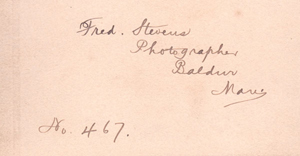 Fred. Stevens
Photographer
Baldur
Man.
No. 467.